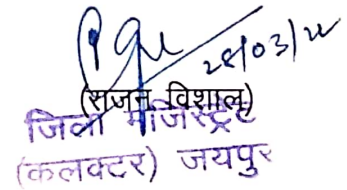 28/03/22
(राजन विशाल)
जिला मजिस्ट्रेट
(कलक्टर) जयपुर